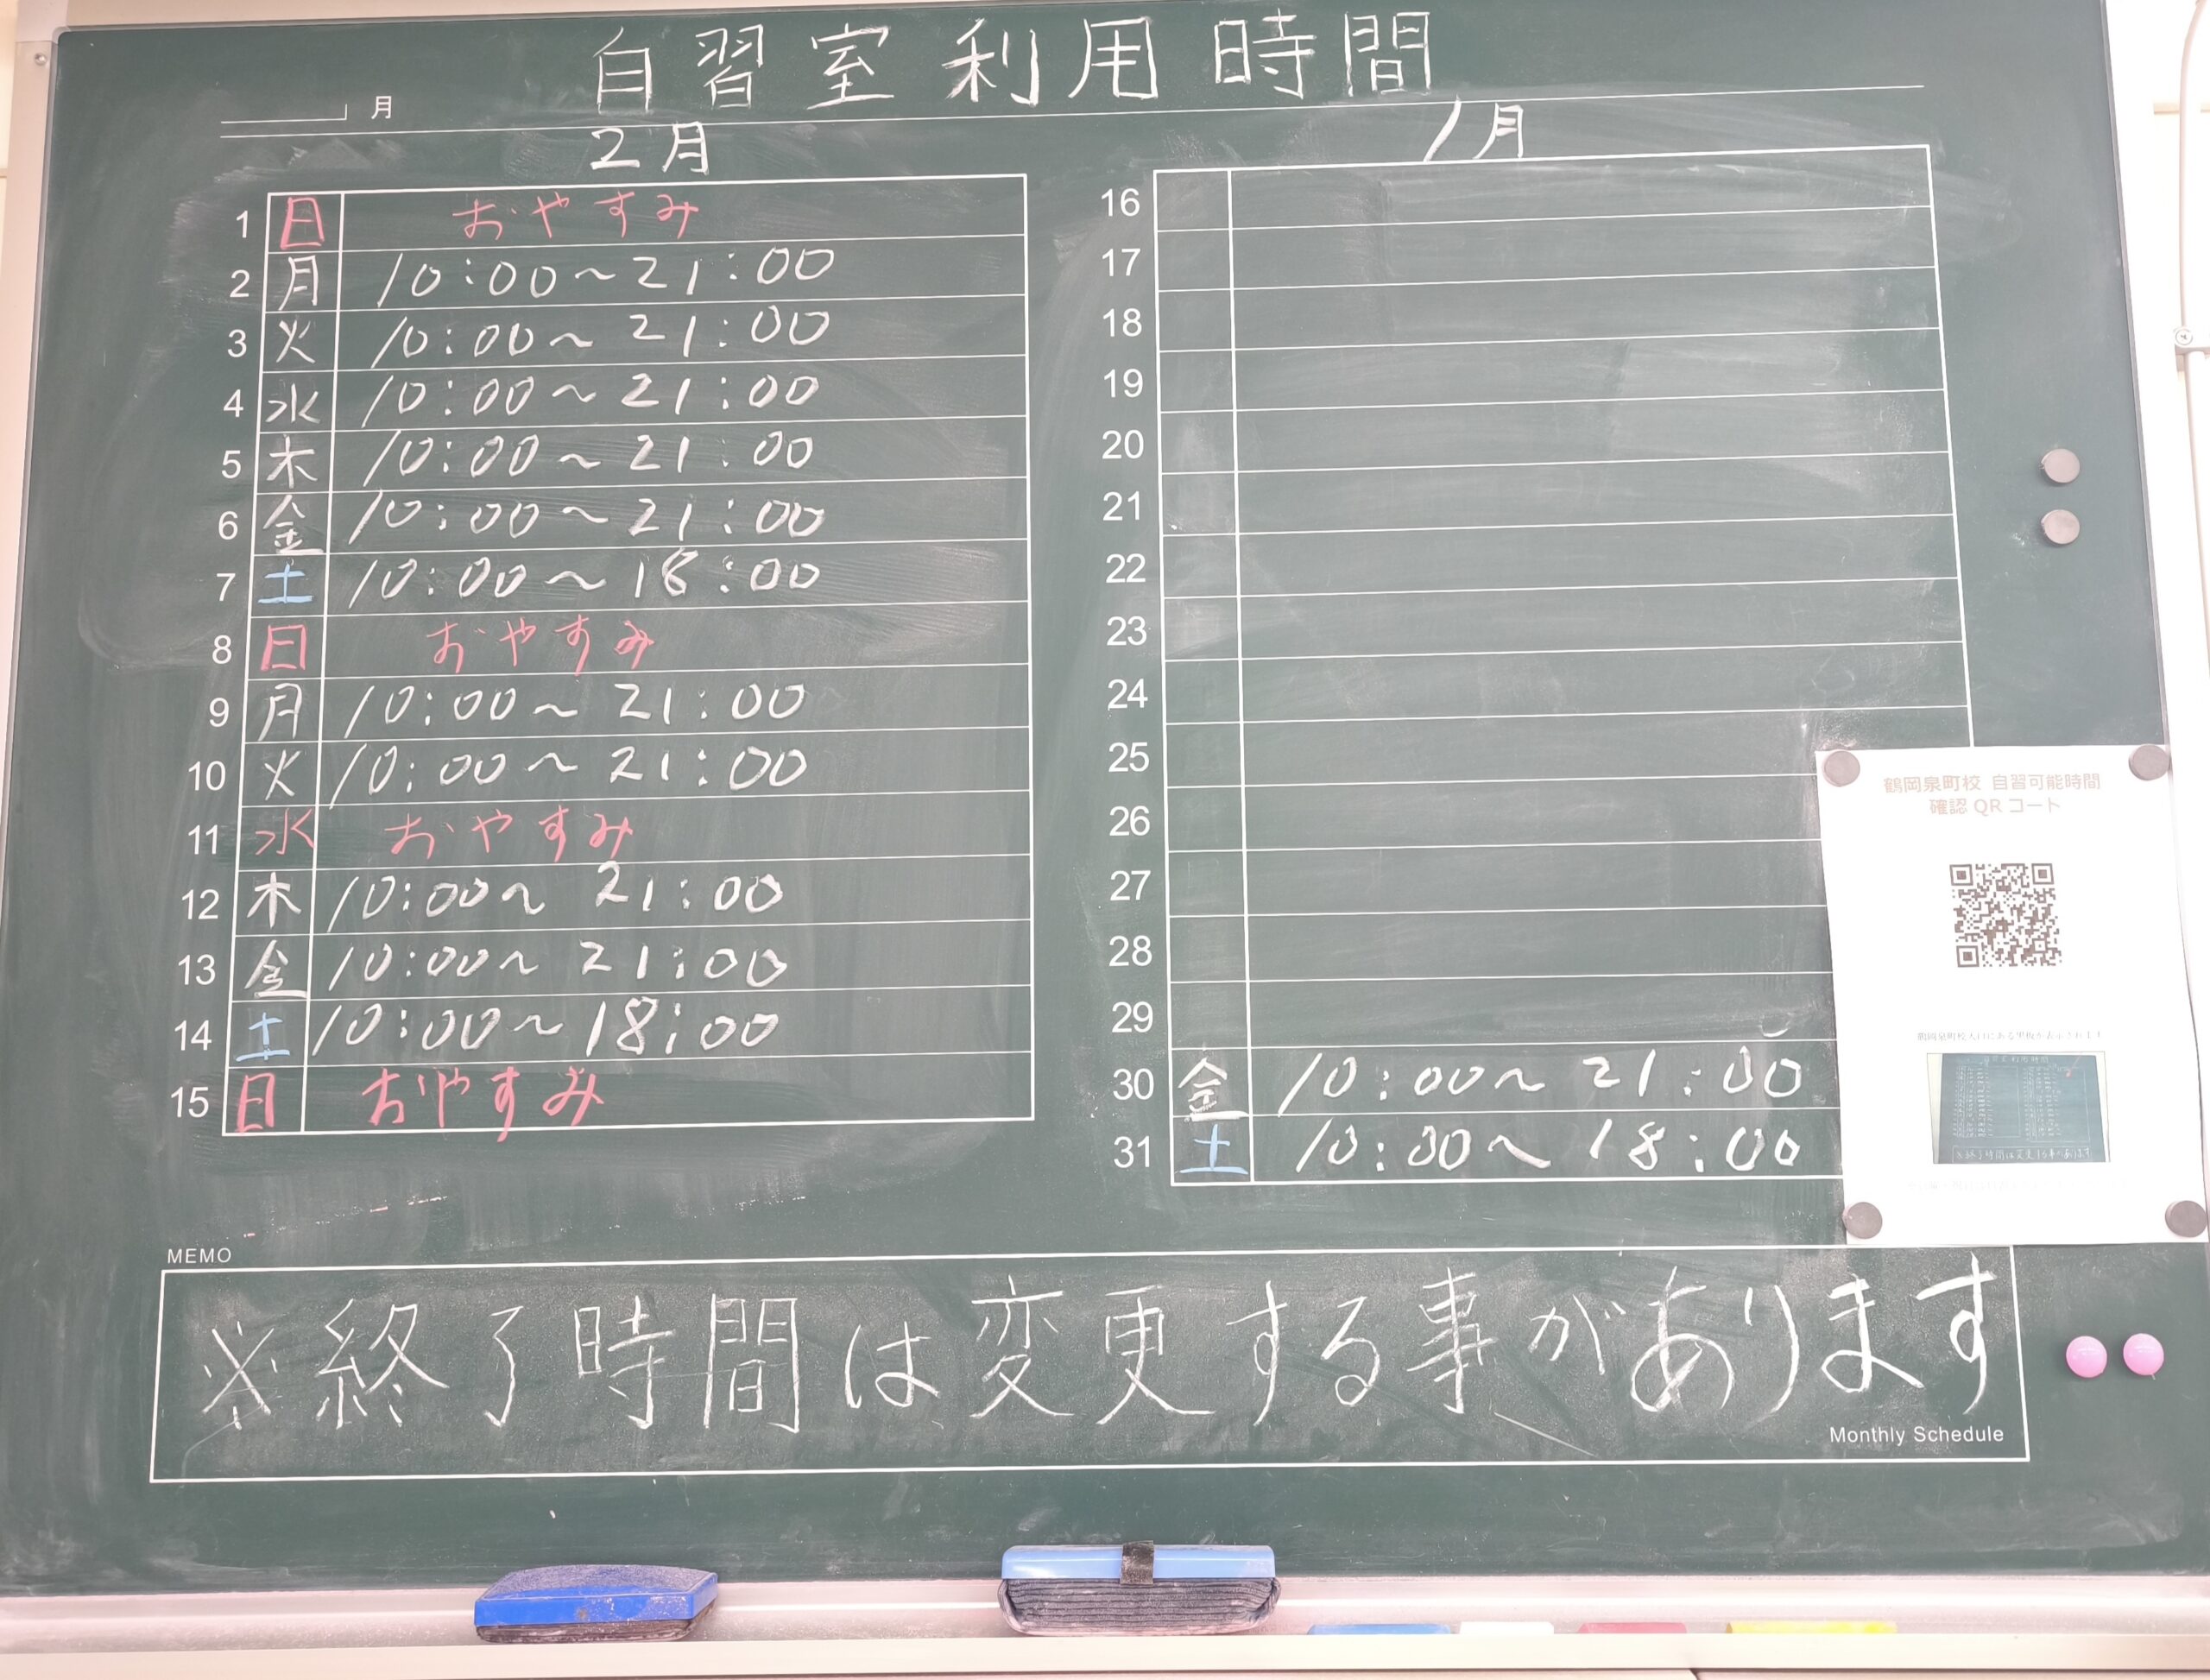 自習室利用時間
月
2月
1 日 おやすみ
2 月 10:00~21:00
3 火 10:00~21:00
4 水 10:00~21:00
5 木 10:00~21:00
6 金 10:00~21:00
7 土 10:00~18:00
8 日 おやすみ
9 月 10:00~21:00
10 火 10:00~21:00
11 水 おやすみ
12 木 10:00~21:00
13 金 10:00~21:00
14 土 10:00~18:00
15 日 おやすみ
1月
16
17
18
19
20
21
22
23
24
25
26
27
28
29
30 金 10:00~21:00
31 土 10:00~18:00
鶴岡泉町校 自習可能時間
確認 QR コート
鶴岡泉町校入口にある黒板が表示されます
MEMO
※終了時間は変更する事があります
Monthly Schedule